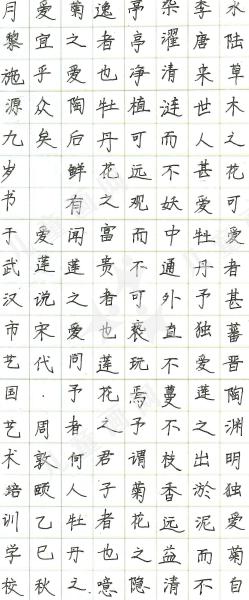 水陆草木之花可爱者甚蕃晋陶渊明独爱菊自
李唐来世人甚爱牡丹予独爱莲之出淤泥而不
杂濯清涟而不妖中通外直不蔓不枝香远益清
亭亭净植可远观而不可亵玩焉予谓菊花之隐
逸者也牡丹花之富贵者也莲花之君子者也噫
菊之爱陶后鲜有闻莲之爱同予者何人牡丹之
爱宜乎众矣 爱莲说宋代·周敦颐乙巳秋
月黎施源九岁书于武汉市艺国艺术培训学校